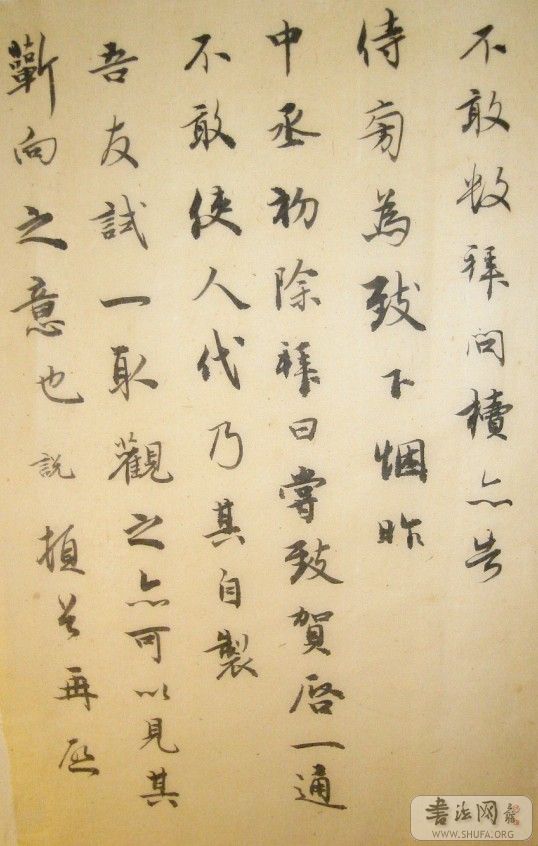 不敢数拜問犢亦告
侍旁為致下悃昨
中丞初除拜日嘗致賀啓一通
不敢使人代乃其自製
吾友試一取觀之亦可以見其
蘄向之意也 說 頓首再啓
書法网
WWW.SHUFA.ORG